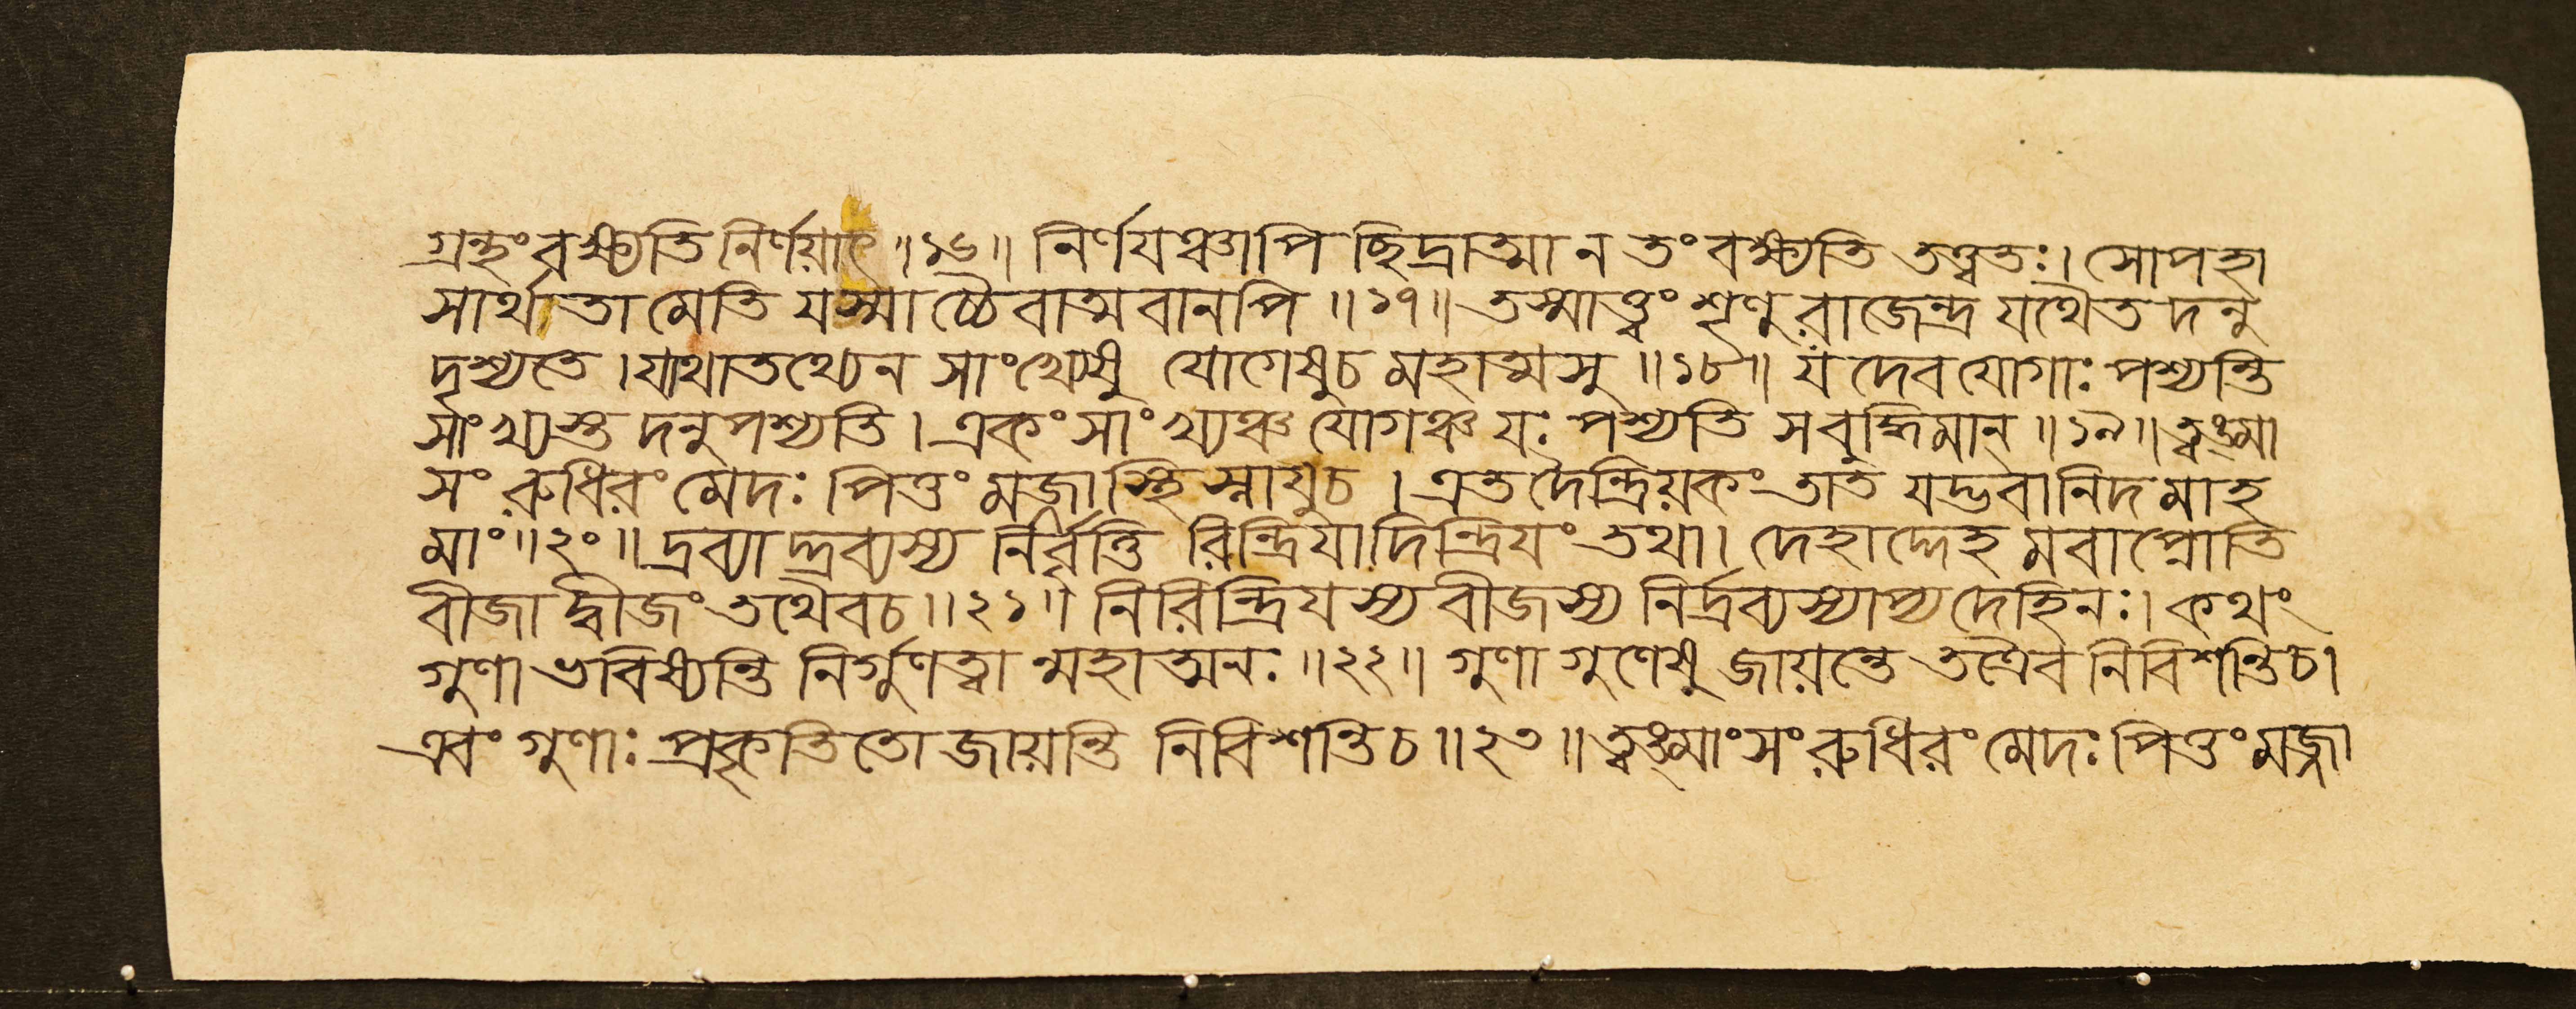 গ্রন্থং বক্ষ্যতি নির্ণয়াৎ ॥১৬॥ নির্ণযঞ্চাপি ছিদ্রাত্মা ন তং বক্ষ্যতি তত্ত্বতঃ। সোপহা
সার্থাতা মেতি যস্মা চ্চৈবাত্মবানপি ॥১৭॥ তস্মাত্ত্বং শৃণু রাজেন্দ্র যথৈত দনু
দৃশ্যতে । যাথাতথ্যেন সাংখ্যেষু যোগেষু চ মহাত্মসু ॥১৮॥ যঁ দেব যোগাঃ পশ্যন্তি
সাংখ্যস্ত দনুপশ্যতি । একং সাংখ্যঞ্চ যোগঞ্চ যঃ পশ্যতি সবুদ্ধিমান্ ॥১৯॥ ত্বঙ্মা
সং রুধিরং মেদঃ পিত্তং মজ্জাস্থি স্নাযুচ । এত দৈন্দ্রিয়কং তাত যদ্ভবানিদ মাহ
মাং ॥২০॥ দ্রব্যা দ্দ্রব্যস্য নির্বৃত্তি রিন্দ্রিযাদিন্দ্রিযং তথা। দেহাদ্দেহ মবাপ্নোতি
বীজা দ্বীজং তথৈবচ ॥২১॥ নিরিন্দ্রিযস্য বীজস্য নির্দ্রব্যস্যাপ্য দেহিনঃ। কথং
গুণা ভবিষ্যন্তি নির্গুণত্বা ন্মহাত্মনঃ ॥২২॥ গুণা গুণেষু জায়ন্তে তত্রৈব নিবিশন্তিচ।
এবং গুণাঃ প্রকৃতিতো জায়ন্তি নিবিশন্তিচ ॥২৩॥ ত্বঙ্মাংসং রুধিরং মেদঃ পিত্তং মজ্জা